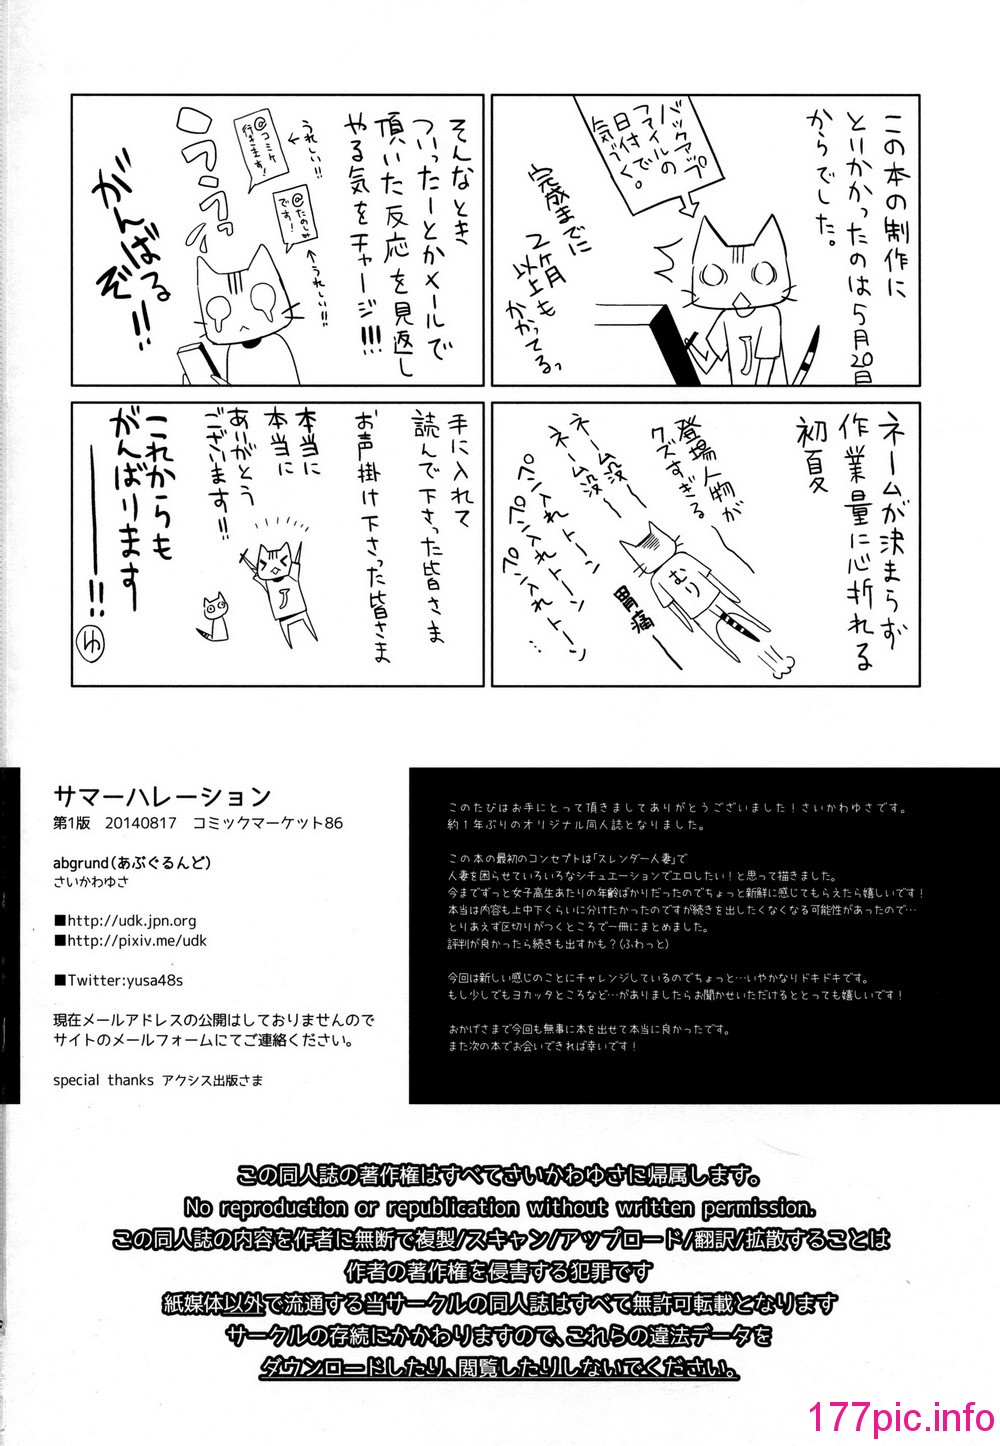 この本の制作に
といかかったのは5月20日
からでした。
バックアップ
ファイルの
日付で
気づく。
完成までに
2ヶ月
以上も
かかってるっ
そんなとき
ついったーとかメールで
頂いた反応を見返し
やる気をチャージ!!!
うれしい!!
@コミケ
行きます!
@たのしみ
です!
うれしい!!
がんばる
ぞ!!
ネームが決まらず
作業量に心折れる
初夏
登場人物が
クズすぎる
ネーム没〜
ネーム没〜
ペン入れトーン
ペン入れトーン
ペン入れトーン
むり
胃痛
手に入れて
読んで下さった皆さま
お声掛け下さった皆さま
本当に
本当に
ありがとう
ございます!!
これからも
がんばります
――!!
ゆ
サマーハレーション
第1版 20140817 コミックマーケット86
abgrund(あぶぐるんど)
さいかわゆさ
■http://udk.jpn.org
■http://pixiv.me/udk
■Twitter:yusa48s
現在メールアドレスの公開はしておりませんので
サイトのメールフォームにてご連絡ください。
special thanks アクシス出版さま
このたびはお手にとって頂きましてありがとうございました!さいかわゆさです。
約1年ぶりのオリジナル同人誌となりました。
この本の最初のコンセプトは「スレンダー人妻」で
人妻を困らせていろいろなシチュエーションでエロしたい!と思って描きました。
今までずっと女子高生あたりの年齢ばかりだったのでちょっと新鮮に感じてもらえたら嬉しいです!
本当は内容も上中下くらいに分けたかったのですが続きを出したくなくなる可能性があったので…
とりあえず区切りがつくところで一冊にまとめました。
評判が良かったら続きも出すかも?(ふわっと)
今回は新しい感じのことにチャレンジしているのでちょっと…いやかなりドキドキです。
もし少しでもヨカッタところなど…がありましたらお聞かせいただけるととっても嬉しいです!
おかげさまで今回も無事に本を出せて本当に良かったです。
また次の本でお会いできれば幸いです!
この同人誌の著作権はすべてさいかわゆさに帰属します。
No reproduction or republication without written permission.
この同人誌の内容を作者に無断で複製/スキャン/アップロード/翻訳/拡散することは
作者の著作権を侵害する犯罪です
紙媒体以外で流通する当サークルの同人誌はすべて無許可転載となります
サークルの存続にかかわりますので、これらの違法データを
ダウンロードしたり、閲覧したりしないでください。
177pic.info